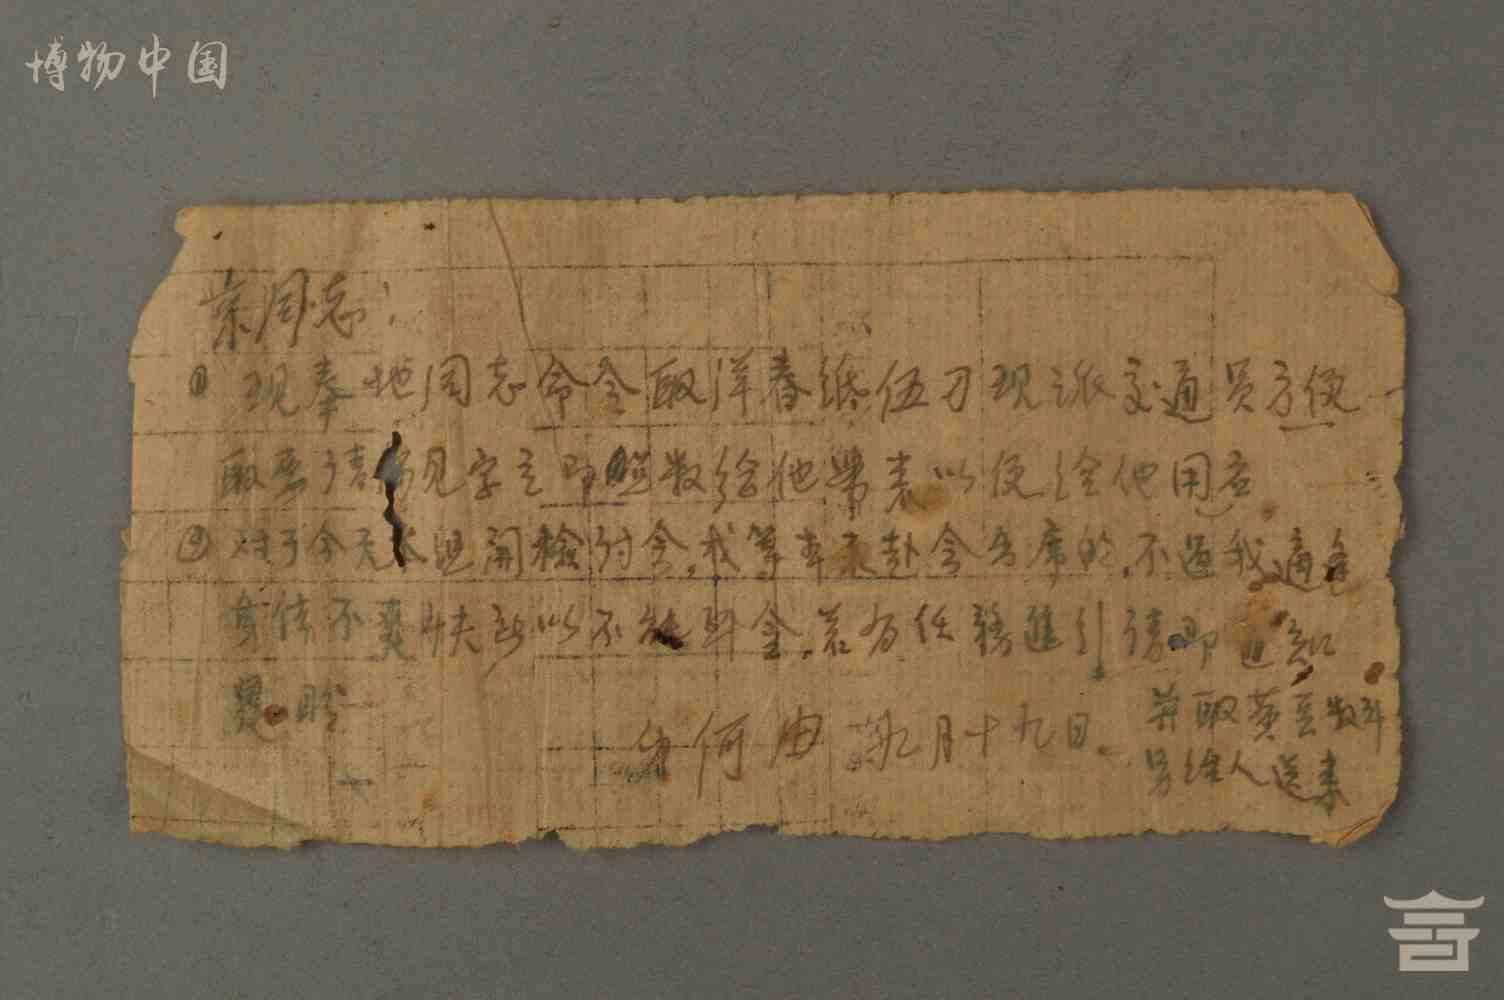 博物中国
同志:
① 现奉地同志命令取洋春纸伍刀现派交通员方便
取 请 见字立即照数给他带来以便给他用
② 对于今天 组开检讨会,我等本来赴会出席的,不过我适逢
身体不爽快所以不能即会,若有任务进行请即通知
是盼
何由 九月十九日
并取黄豆数斗
另给人送来